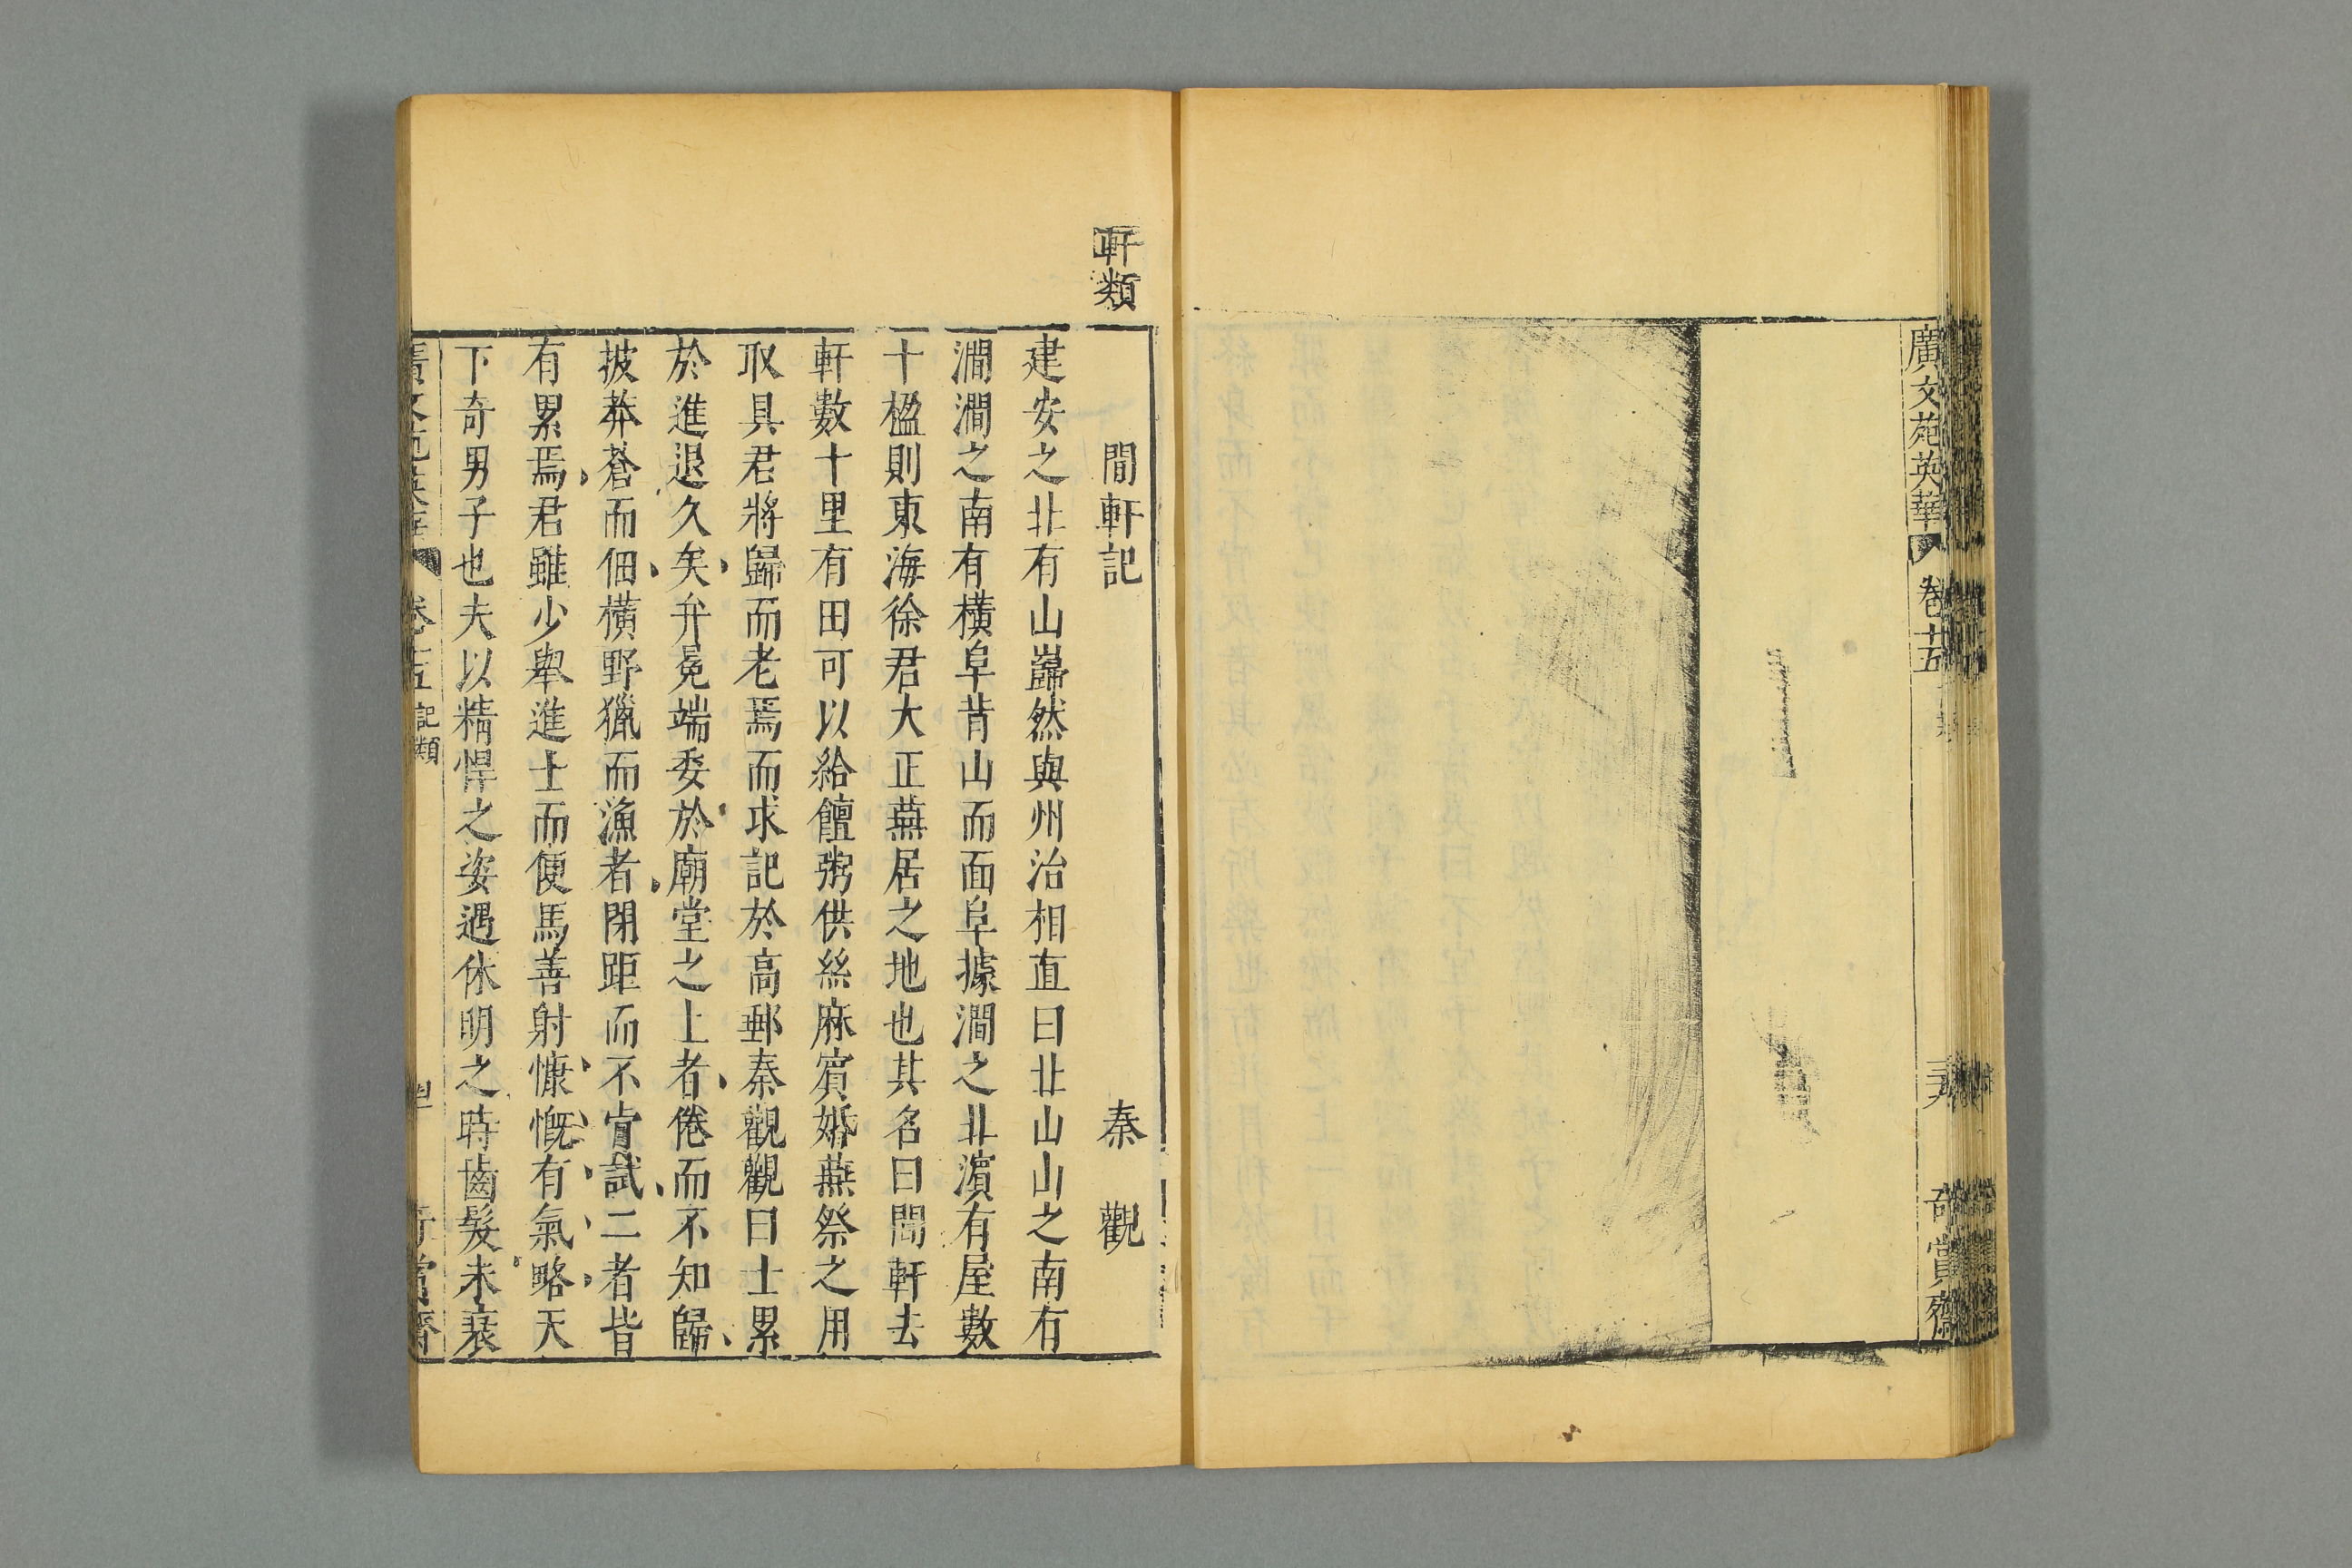 廣文苑英華 卷廿五
奇賞齋
軒類
閒軒記 秦觀
建安之北有山巋然與州治相直曰北山山之南有
澗澗之南有橫阜背山而面阜據澗之北濵有屋數
十楹則東海徐君大正燕居之地也其名曰閒軒去
軒數十里有田可以給饘粥供絲麻賔婚燕祭之用
取具君將歸而老焉而求記於高郵秦觀觀曰士累
於進退久矣弁冕端委於廟堂之上者倦而不知歸
披莽蒼而佃橫野獵而漁者閉距而不肯試二者皆
有累焉君雖少舉進士而便馬善射慷慨有氣略天
下奇男子也夫以精悍之姿遇休明之時齒髮未衰
卷 五 記類